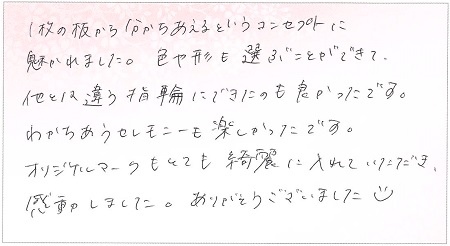 1枚の板から分かちあえるというコンセプトに
魅かれました。色や形も選ぶことができて、
他とは違う指輪にできたのも良かったです。
わかちあうセレモニーも楽しかったです。
オリジナルマークもとても綺麗に入れていただき、
感動しました。ありがとうございました☺